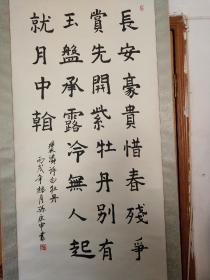 長安豪貴惜春殘爭
賞先開紫牡丹別有
玉盤承露冷無人起
就月中
裴潾詩白牡丹
丙戌年桂月孫永申書